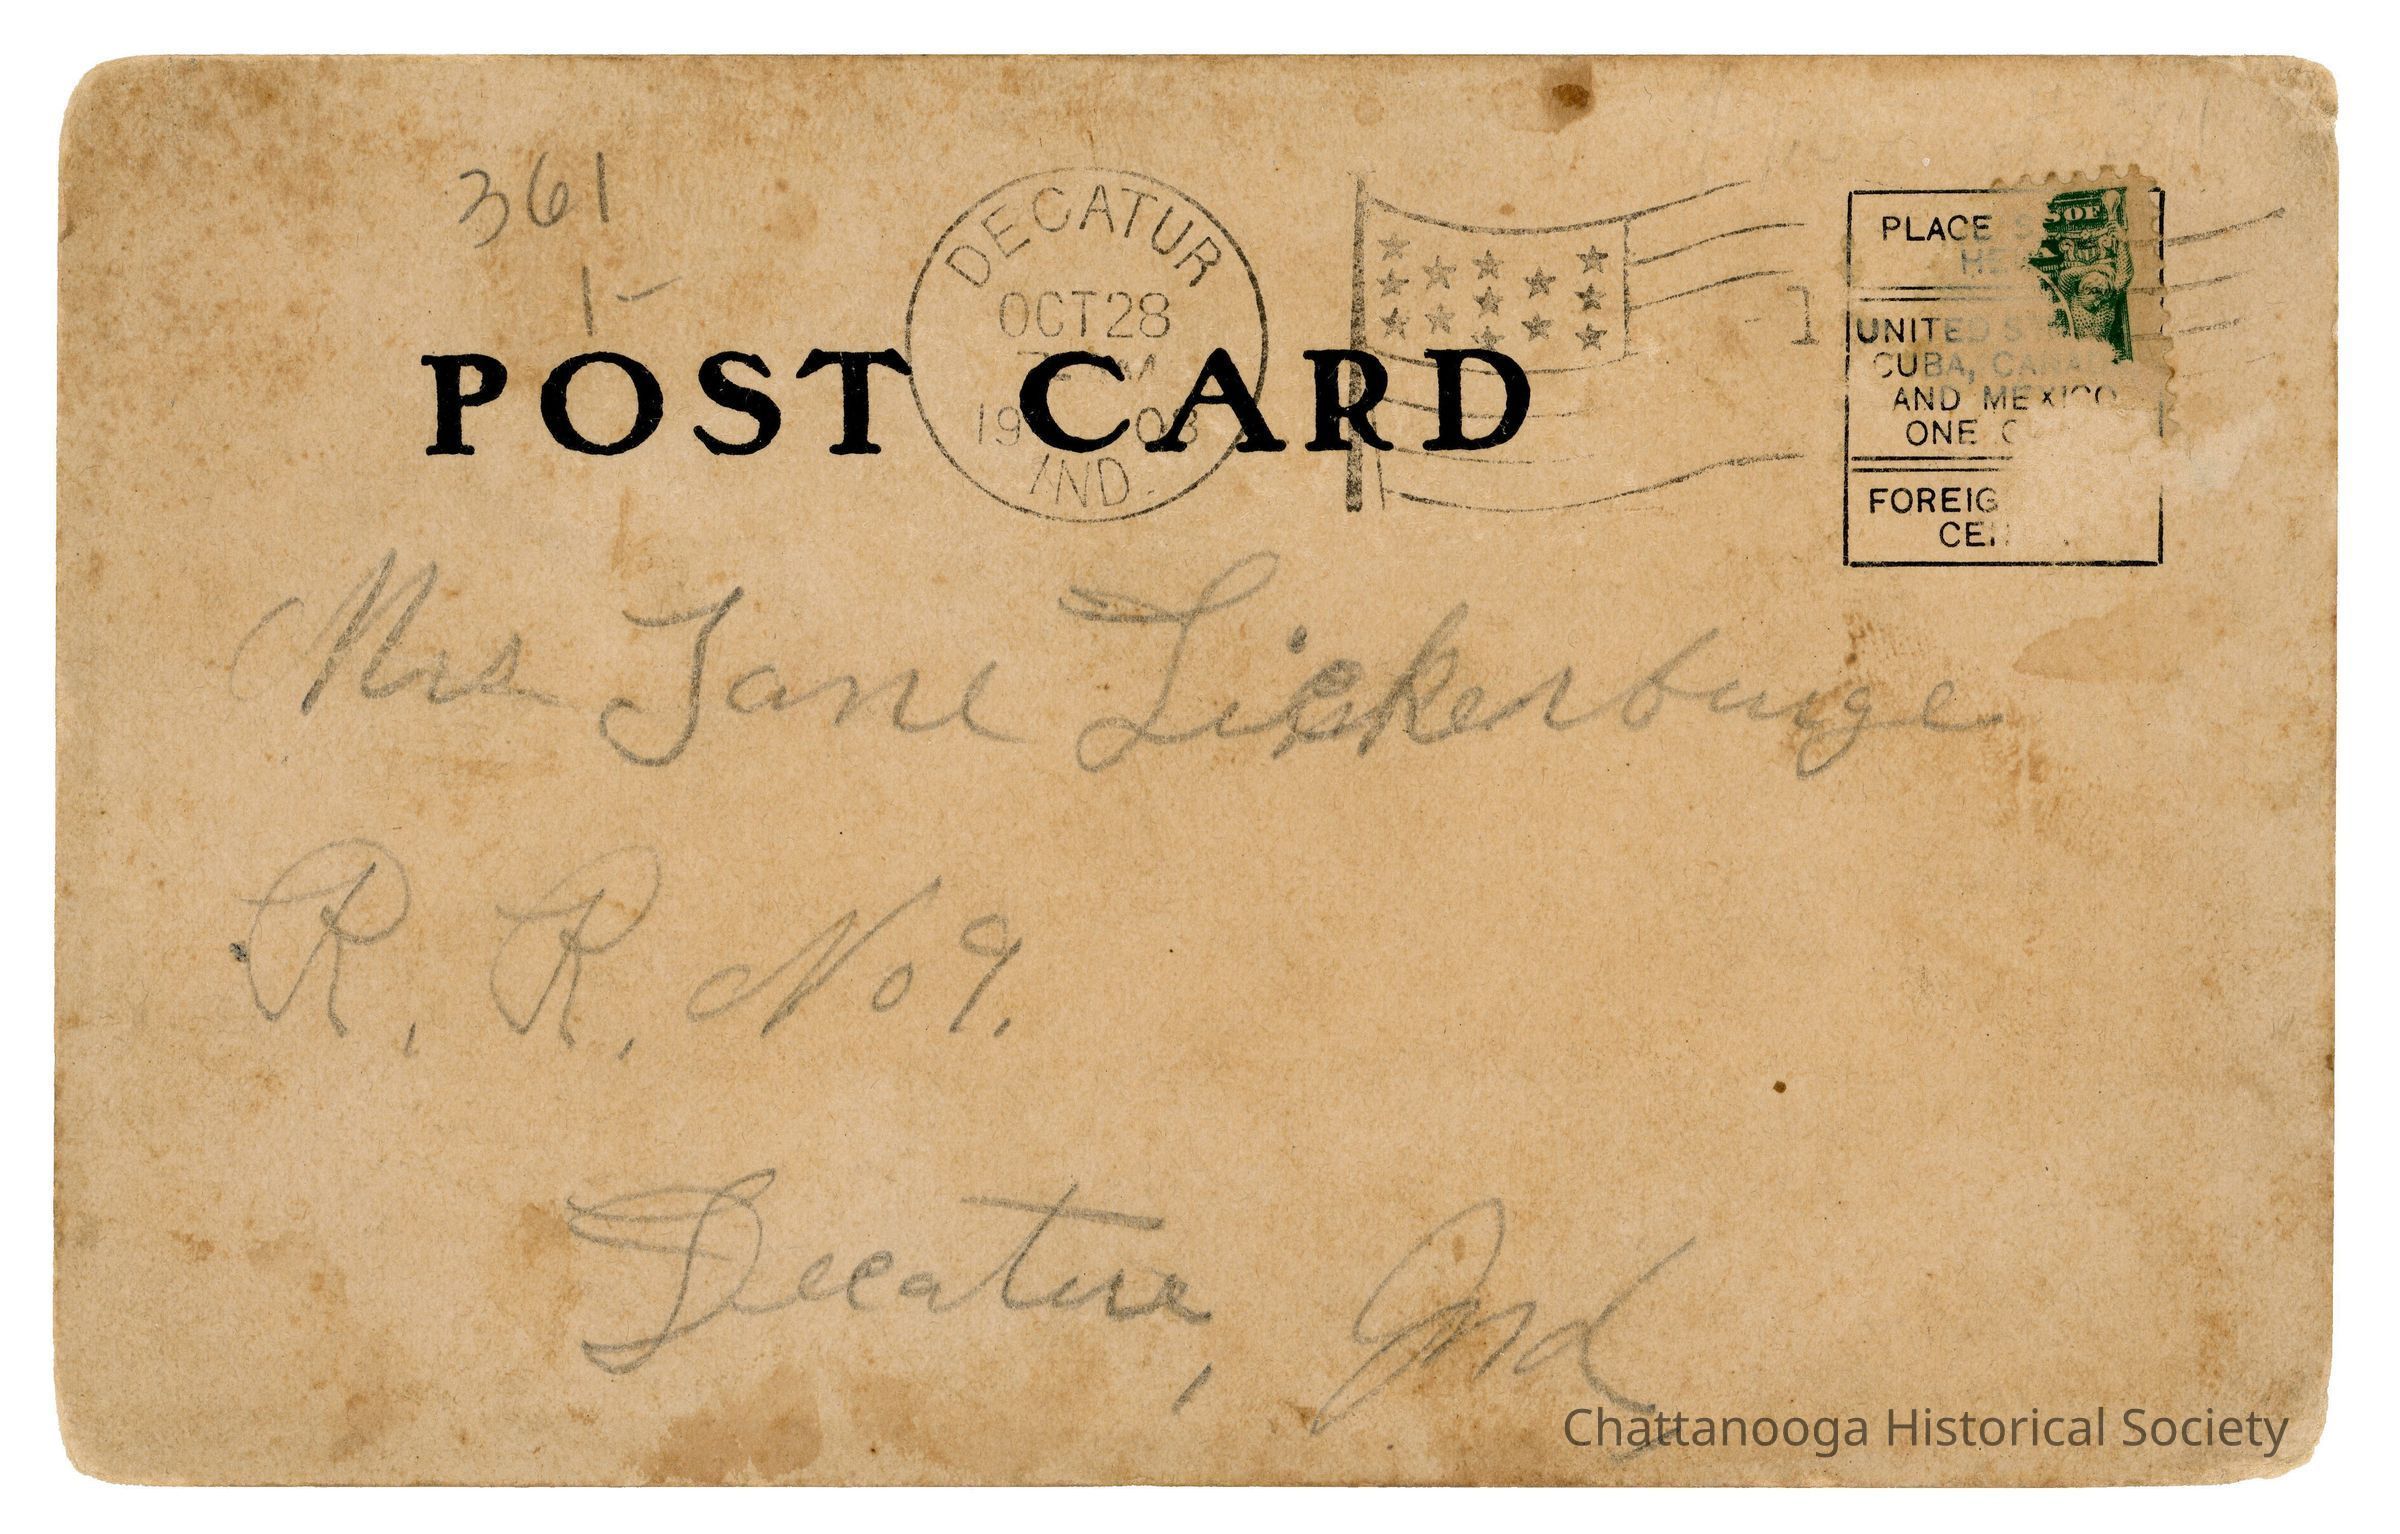 361
1-
DECATUR
OCT 28
7 M
19 08
IND.
1
POST CARD
PLACE S
HE
S OF
UNITED ST
CUBA, CANA
AND MEXICO
ONE C
FOREIG
CEN
Mrs Jane Lickerburge
R. R. No 9.
Decature, Ind
Chattanooga Historical Society